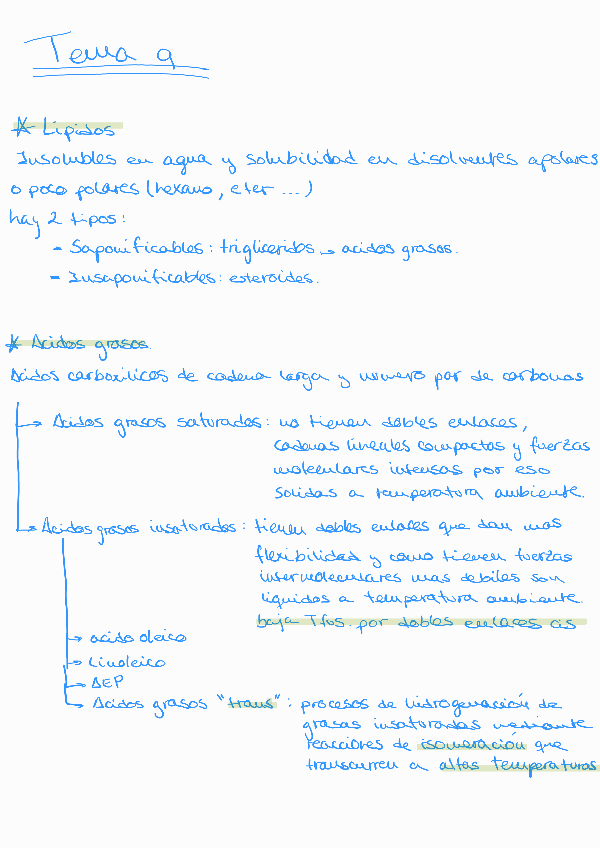 Tema 9
* Lípidos
Insolubles en agua y solubilidad en disolventes apolares
o poco polares (hexano, eter ...)
hay 2 tipos:
- Saponificables: trigliceridos → acidos grasos.
- Insaponificables: esteroides.
* Acidos grasos.
Acidos carboxilicos de cadena larga y numero par de carbonos
→ Acidos grasos saturados: no tienen dobles enlaces,
cadenas lineales compactas y fuerzas
moleculares intensas por eso
solidas a temperatura ambiente.
→ Acidos grasos insaturados: tienen dobles enlaces que dan mas
flexibilidad y como tienen fuerzas
intermoleculares mas debiles son
liquidos a temperatura ambiente.
baja Tfus. por dobles enlaces cis
→ acido oleico
→ Linoleico
→ AEP
→ Acidos grasos "trans": procesos de hidrogenación de
grasas insaturadas mediante
reacciones de isomeración que
transcurren a altas temperaturas